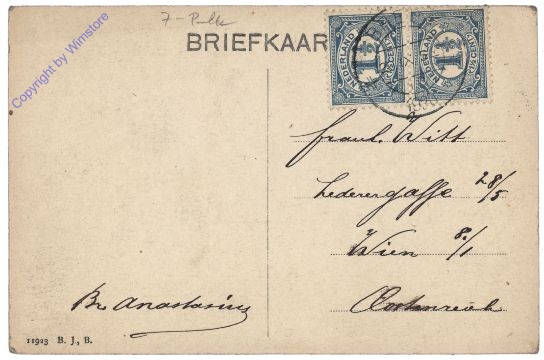 Copyright by Wimstore
7 -
BRIEFKAAR
NEDERLAND
1½
CENT
NEDERLAND
1½
CENT
Fraul. Witt
Lederergasse 28/5
Wien 8./1
Oostenreich
Br. Anastasius
11923 B. J., B.